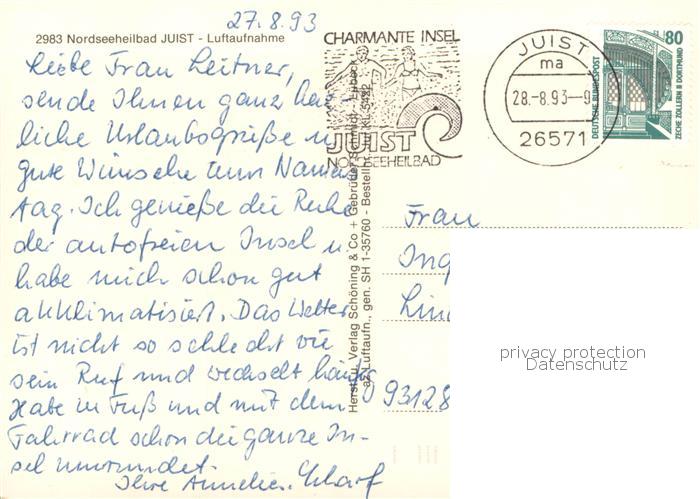 27.8.93
2983 Nordseeheilbad JUIST - Luftaufnahme
Liebe Frau Leitner,
sende Ihnen ganz herz-
liche Urlaubsgrüße u.
gute Wünsche zum Namens
tag. Ich genieße die Ruhe
der autofreien Insel u.
habe mich schon gut
akklimatisiert. Das Wetter
ist nicht so schlecht wie
sein Ruf und wechselt häufig
Habe zu Fuß und mit dem
Fahrrad schon die ganze In-
sel umrundet.
Ihre Annelies Scharf
Herst. u. Verlag Schöning & Co + Gebrüder Schmidt, Lübeck
Luftaufn., gen. SH 1-35760 - Bestell
CHARMANTE INSEL
JUIST
NORDSEEHEILBAD
JUIST
ma
28.-8.93-9
26571
80
DEUTSCHE BUNDESPOST
ZECHE ZOLLERN II DORTMUND
Frau
Ing
Lin
93128
privacy protection
Datenschutz